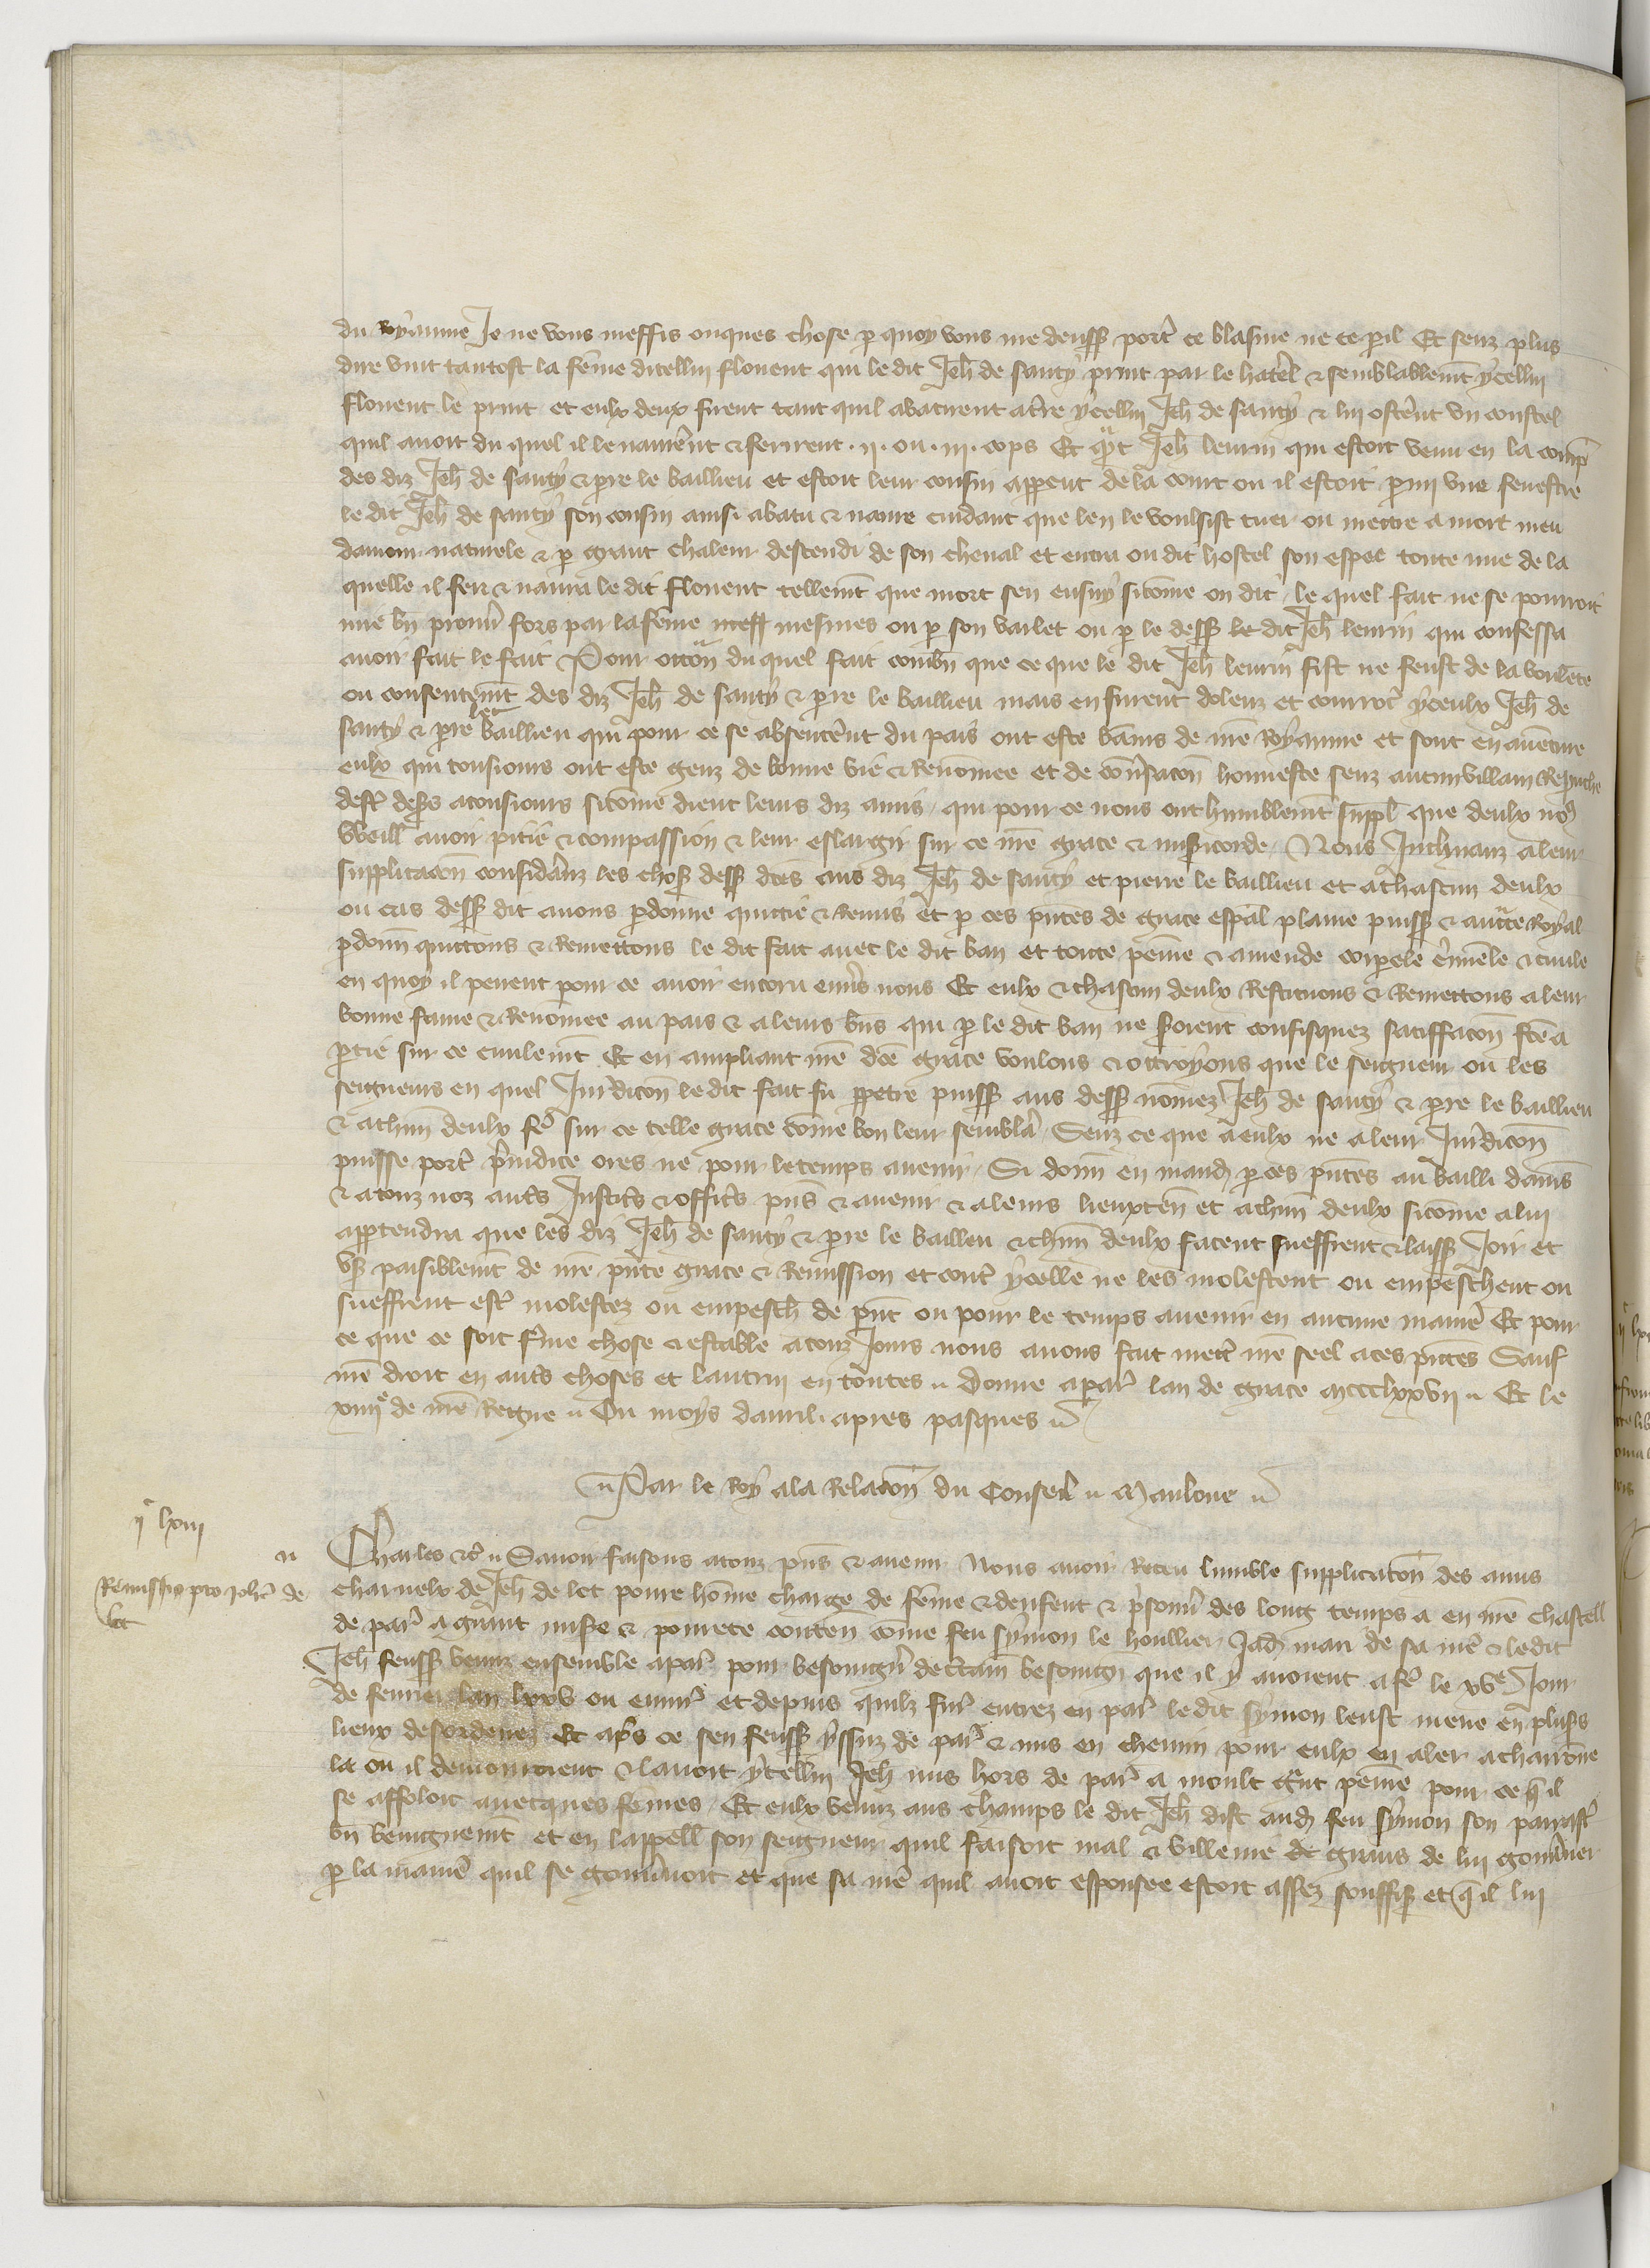 du royaume Je ne vous meffis onques chose p quoy vous me deuss port ce blasme ne ce pil Et senz plus
dire vint tantost la feme dicellui flouent qui le dit Jeh de santy print par le haterel & semblablemt ycellui
flouent le print et eulx deux firent tant quil abatirent a tre ycellui Jeh de santy & lui osterent un coustel
quil avoit du quel il le navrerent & ferirent .ii. ou .iii. cops Et qnt Jeh leurin qui estoit venu en la comp
des diz Jeh de santy & pre le baillieu et estoit leur cousin appceut de la court ou il estoit pmi une fenestre
le dit Jeh de santy son cousin ainsi abatu & navre cuidant que len le voulsist tuer ou mettre a mort meu
damour naturele & p grant chaleur descendi de son cheval et entra ou dit hostel son espee toute nue de la
quelle il feri & navra le dit flouent tellemt que mort sen ensuy sicome on dit / le quel fait ne se pourroit
mie bn prouv fors par la feme mesmes ou p son varlet ou p le dess le dit Jeh leurin qui confessa
avoir fait le fait Pour occon du quel fait combn que ce que le dit Jeh leurin fist ne feust de la voulete
ou consentemt des diz Jeh de santy & pre le baillieu mais en furent dolenz et courroc yceulx Jeh de
santy & pre le baillieu qui pour ce se absenterent du pais ont este banis de nre royaume et sont en aventure
eulx qui tousiours ont este genz de bonne vie & renomee et de conversacon honneste senz aucun villain reprouche
dest deserts a tousiours sicome dient leurs diz amis / qui pour ce nous ont humblemt suppl que deulx no
vueill avoir pitie & compassion & leur eslargir sur ce nre grace & misericorde / Nous Inclinanz a leur
supplicacon considerans les chos dess dces aus diz Jeh de santy et pierre le baillieu et a chascun deulx
ou cas dess dit avons pdonne quictie & remis et p ces pntes de grace espal plaine puiss & aucte royal
pdonn quictons & remettons le dit fait avec le dit ban et toute peine & amende corpele crimele & civile
en quoy il pevent pour ce avoir encoru envs nous Et eulx & chascun deulx restituons & remettons a leur
bonne fame & renomee au pais & a leurs bns qui p le dit ban ne seroient confisquez satiffacon fce a
ptie sur ce civilemt Et en ampliant nre dce grace voulons & octroyons que le seigneur ou les
seigneurs en quel Juridicon le dit fait fu ppetre puiss aus dess nomez Jeh de santy & pre le baillieu
& a chun deulx fe sur ce telle grace come bon leur semblera Senz ce que a eulx ne a leur Juridicon
puisse port priudice ores ne pour le temps avenir / Si donn en mand p ces pntes au bailli damiens
& a touz noz autres Justic & offic pns & avenir & a leurs lieuxten et a chun deulx sicome a lui
apptendra que les diz Jeh de santy & pre le baillieu & chun deulx facent sueffrent & laiss Joir et
us paisiblemt de nre pnte grace & remission et contre ycelle ne les molestent ou empeschent ou
sueffrent est molestez ou empesch de pnt ou pour le temps avenir en aucune maniere Et pour
ce que ce soit ferme chose & estable a touz Jours nous avons fait mett nre seel a ces pntes Sauf
nre droit en autres choses et lautrui en toutes // Donne a par lan de grace mccclxxvii // Et le
xiiiie de nre Regne // Ou moys davril apres pasques //
// Par le roy a la Relacon du Conseil // Mauloue //
iic lxiii
Remissio pro Joh de
let
Charles etc // Savoir faisons a touz pns & avenir Nous avoir receu lumble supplicacion des amis
charnelx de Jeh de let povre home charge de feme & denfent & prisonn des long temps a en nre chastell
de par a grant misere & povrete conten come feu symon le houllier Jad mari de sa mere & le dit
Jeh feuss venuz ensemble a par pour besoingn de ctain besoingn que il y avoient a fe le xve Jour
de fevrier lan lxxv ou envir et depuis quilz fur entrez en par le dit symon leust mene en pluss
lieux desordenez Et aps ce sen feuss yssuz de par & mis en chemin pour eulx en aler a charrone
la ou il demouroient & lavoit ycellui Jeh mis hors de par a moult grt peine pour ce qil
se affoloit avecques femes / Et eulx venuz aus champs le dit Jeh dist aud feu symon son parrast
bn benignemt et en lappell son seigneur quil faisoit mal & villenie de gruis de lui gouverner
p la maniere quil se gouvernoit et que sa mere quil avoit espousee estoit assez souffis et qil lui